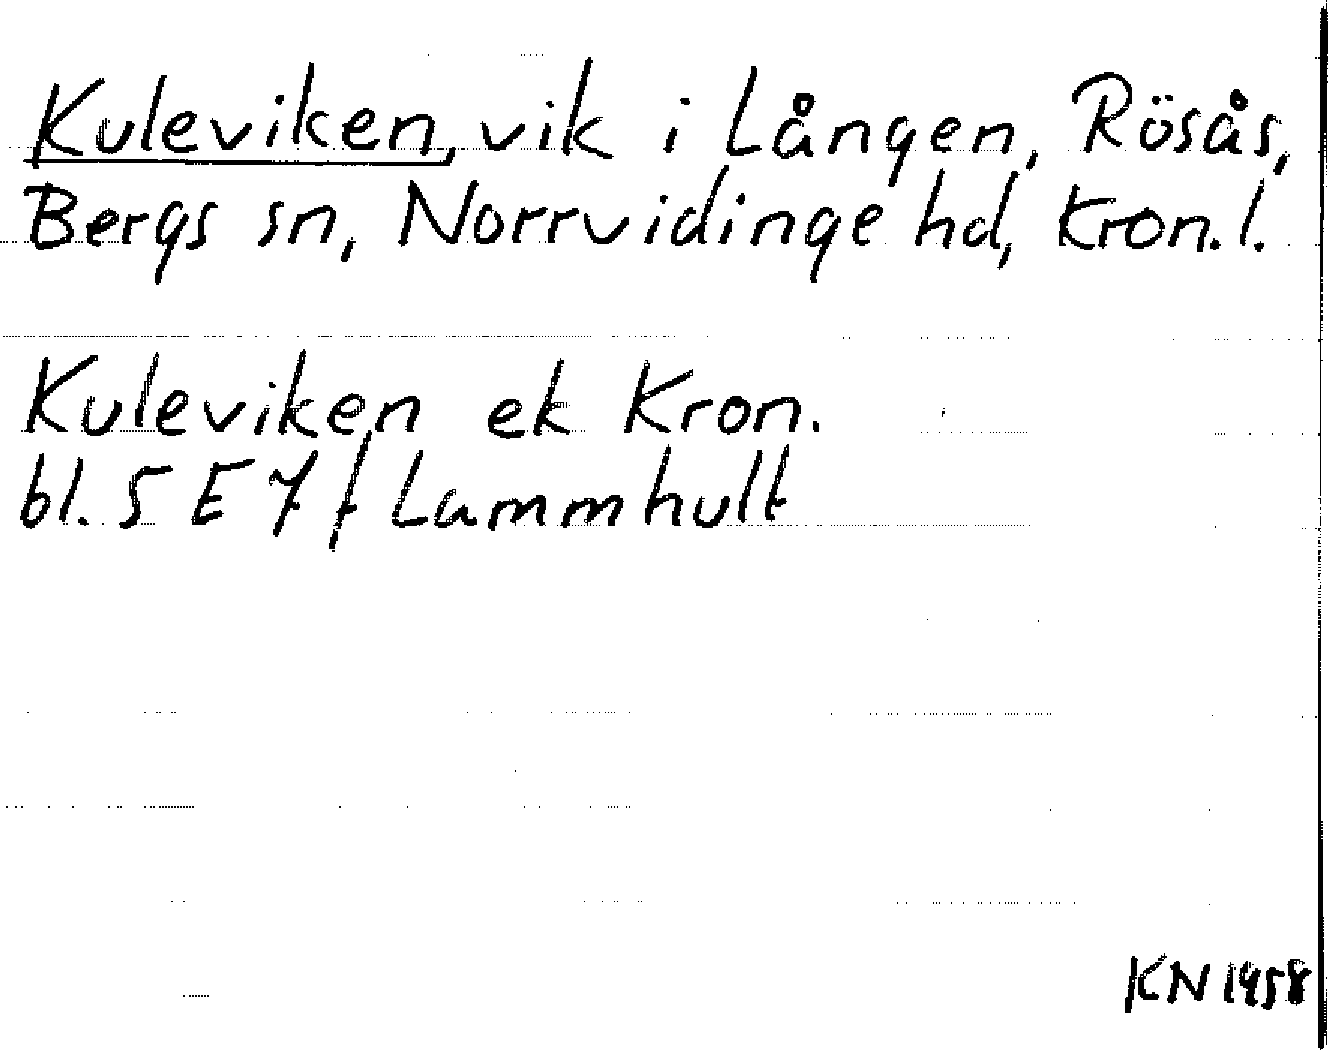 Kuleviken, vik i Lången, Rösås,
Bergs sn, Norrvidinge hd, Kron. l.
Kuleviken ek Kron.
bl. 5 E 7 f Lammhult
KN 1958